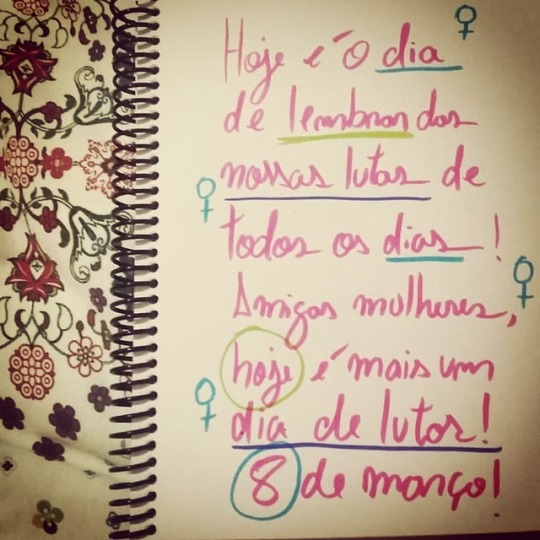 Hoje é o dia
de lembrar das
nossas lutas de
todos os dias!
Amigas mulheres,
hoje é mais um
dia de lutas!
8 de março!